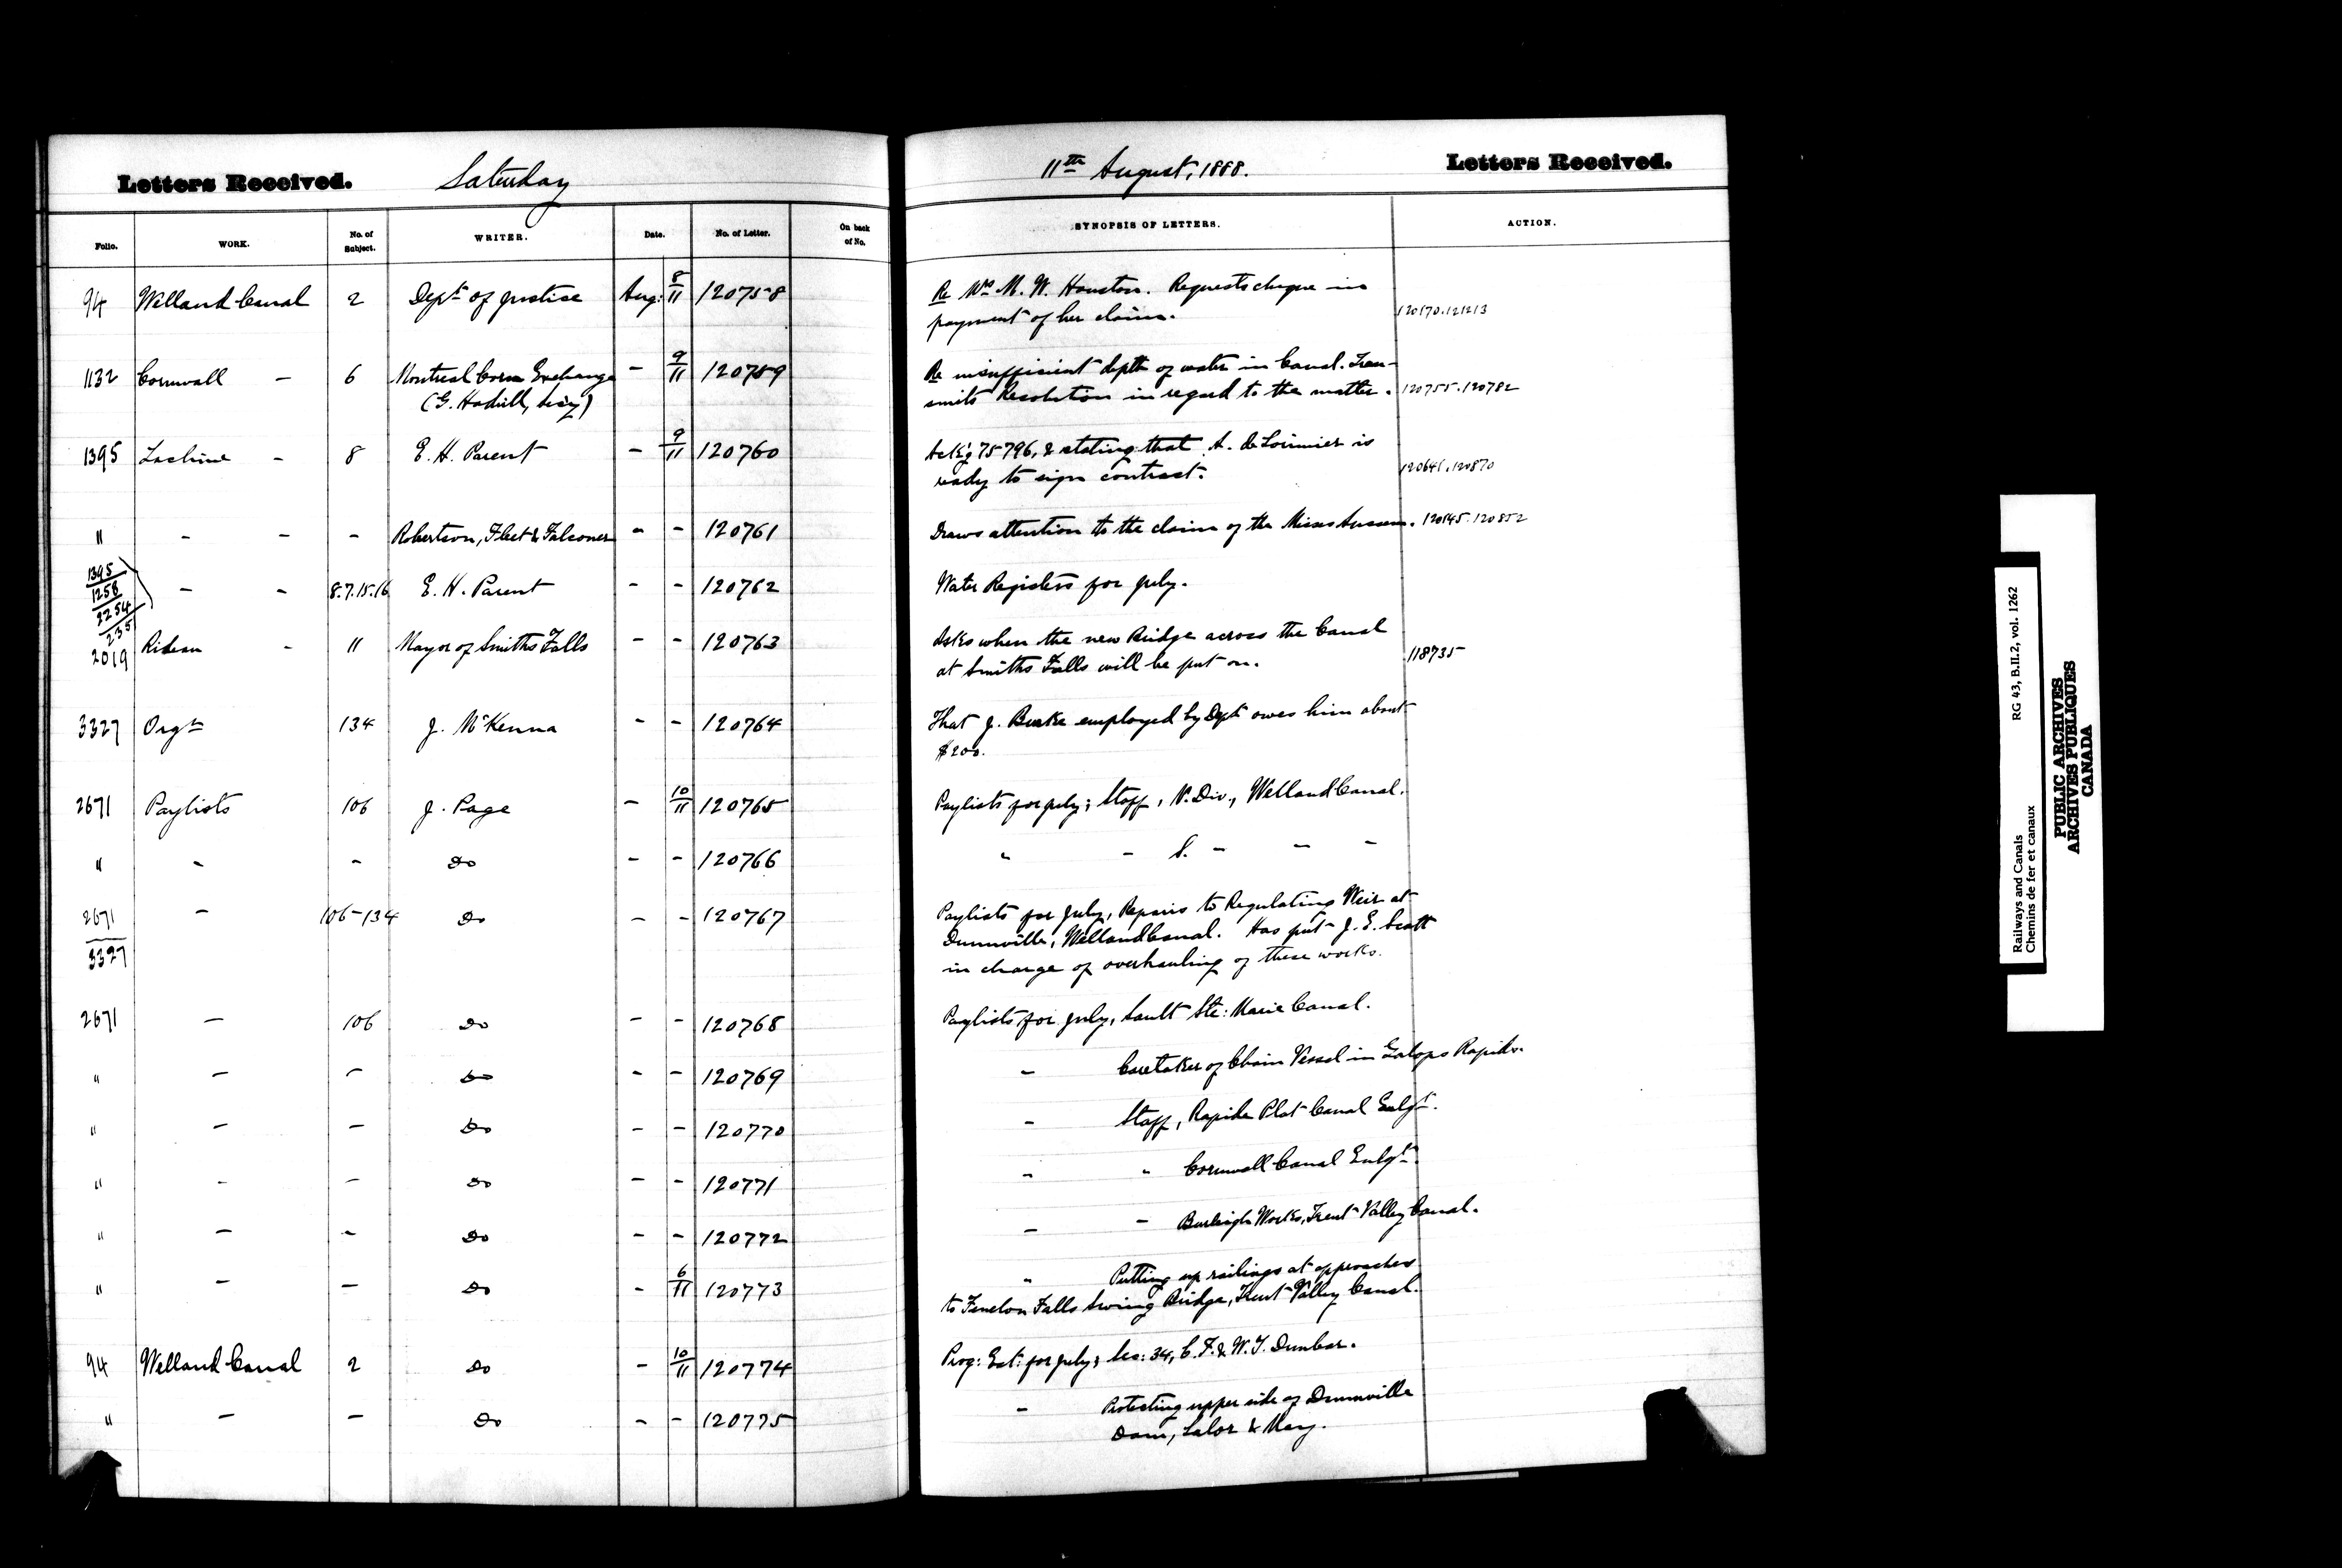 Letters Received. Saturday 11th August, 1888. Letters Received.
Folio. WORK. No. of Subject. WRITER. Date. No. of Letter. On back of No. SYNOPSIS OF LETTERS. ACTION.
94 Welland Canal 2 Dept of Justice Aug: 8/11 120758 Re Mrs M. W. Houston. Requests cheque in
payment of her claim. 120170.121213
1132 Cornwall - 6 Montreal Corn Exchange - 9/11 120759 Re insufficient depth of water in Canal. Trans-
(G. Hadrill, Secy) mits Resolution in regard to the matter. 120755.120782
1395 Lachine - 8 E. H. Parent - 9/11 120760 Ackg 75796, & stating that A. de Lorimier is
ready to sign contract. 120641.120870
" - - - Robertson, Fleet & Falconer - - 120761 Draws attention to the claim of the Misses 120145.120852
1395
1258
2254
235
- - 8.7.15.16 E. H. Parent - - 120762 Water Registers for July.
2019 Rideau - 11 Mayor of Smiths Falls - - 120763 Asks when the new Bridge across the Canal
at Smiths Falls will be put on. 118735
3327 Orgn 134 J. McKenna - - 120764 That J. Burke employed by Dept owes him about
$200.
2671 Paylists 106 J. Page - 10/11 120765 Paylists for July; Staff, N. Div., Welland Canal.
" - - Do - - 120766 " - S. - - -
2671 - 106-134 Do - - 120767 Paylists for July, Repairs to Regulating Weir at
3327 Dunnville, Welland Canal. Has put J. E. Scott
in charge of overhauling of these works.
2671 - 106 Do - - 120768 Paylists for July, Sault Ste: Marie Canal.
" - - Do - - 120769 - Caretaker of Chain Vessel in Galops Rapids.
" - - Do - - 120770 - Staff, Rapide Plat Canal Enlgt.
" - - Do - - 120771 - " Cornwall Canal Enlgt.
" - - Do - - 120772 - - Burleigh Works, Trent Valley Canal.
" - - Do - 6/11 120773 " Putting up railings at approaches
to Fenelon Falls Swing Bridge, Trent Valley Canal.
94 Welland Canal 2 Do - 10/11 120774 Prog: Est: for July; Sec: 34, C. F. & W. J. Dunbar.
" - - Do - - 120775 - Protecting upper side of Dunnville
Dam, Lalor & Mary.
Railways and Canals RG 43, B.II.2, vol. 1262
Chemins de fer et canaux
PUBLIC ARCHIVES
ARCHIVES PUBLIQUES
CANADA